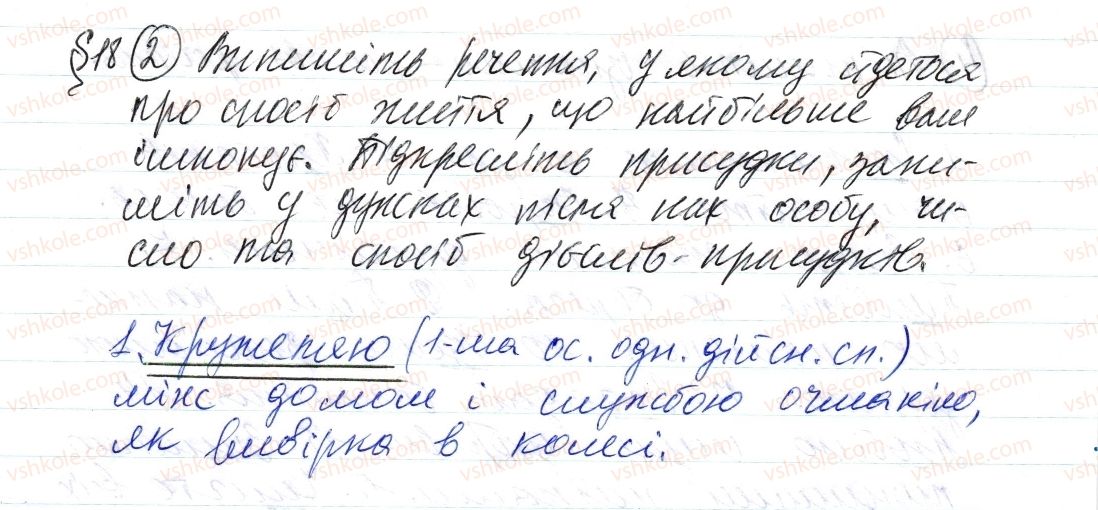 §18 2 Випишіть речення, у якому йдеться
про спосіб життя, що найбільше вам
імпонує. Підкресліть присудки, запи-
шіть у дужках після них особу, чи-
сло та спосіб дієслів-присудків.
1. Кружеляю (1-ша ос. одн. дійсн. сп.)
між домом і службою очманіло,
як вивірка в колесі.